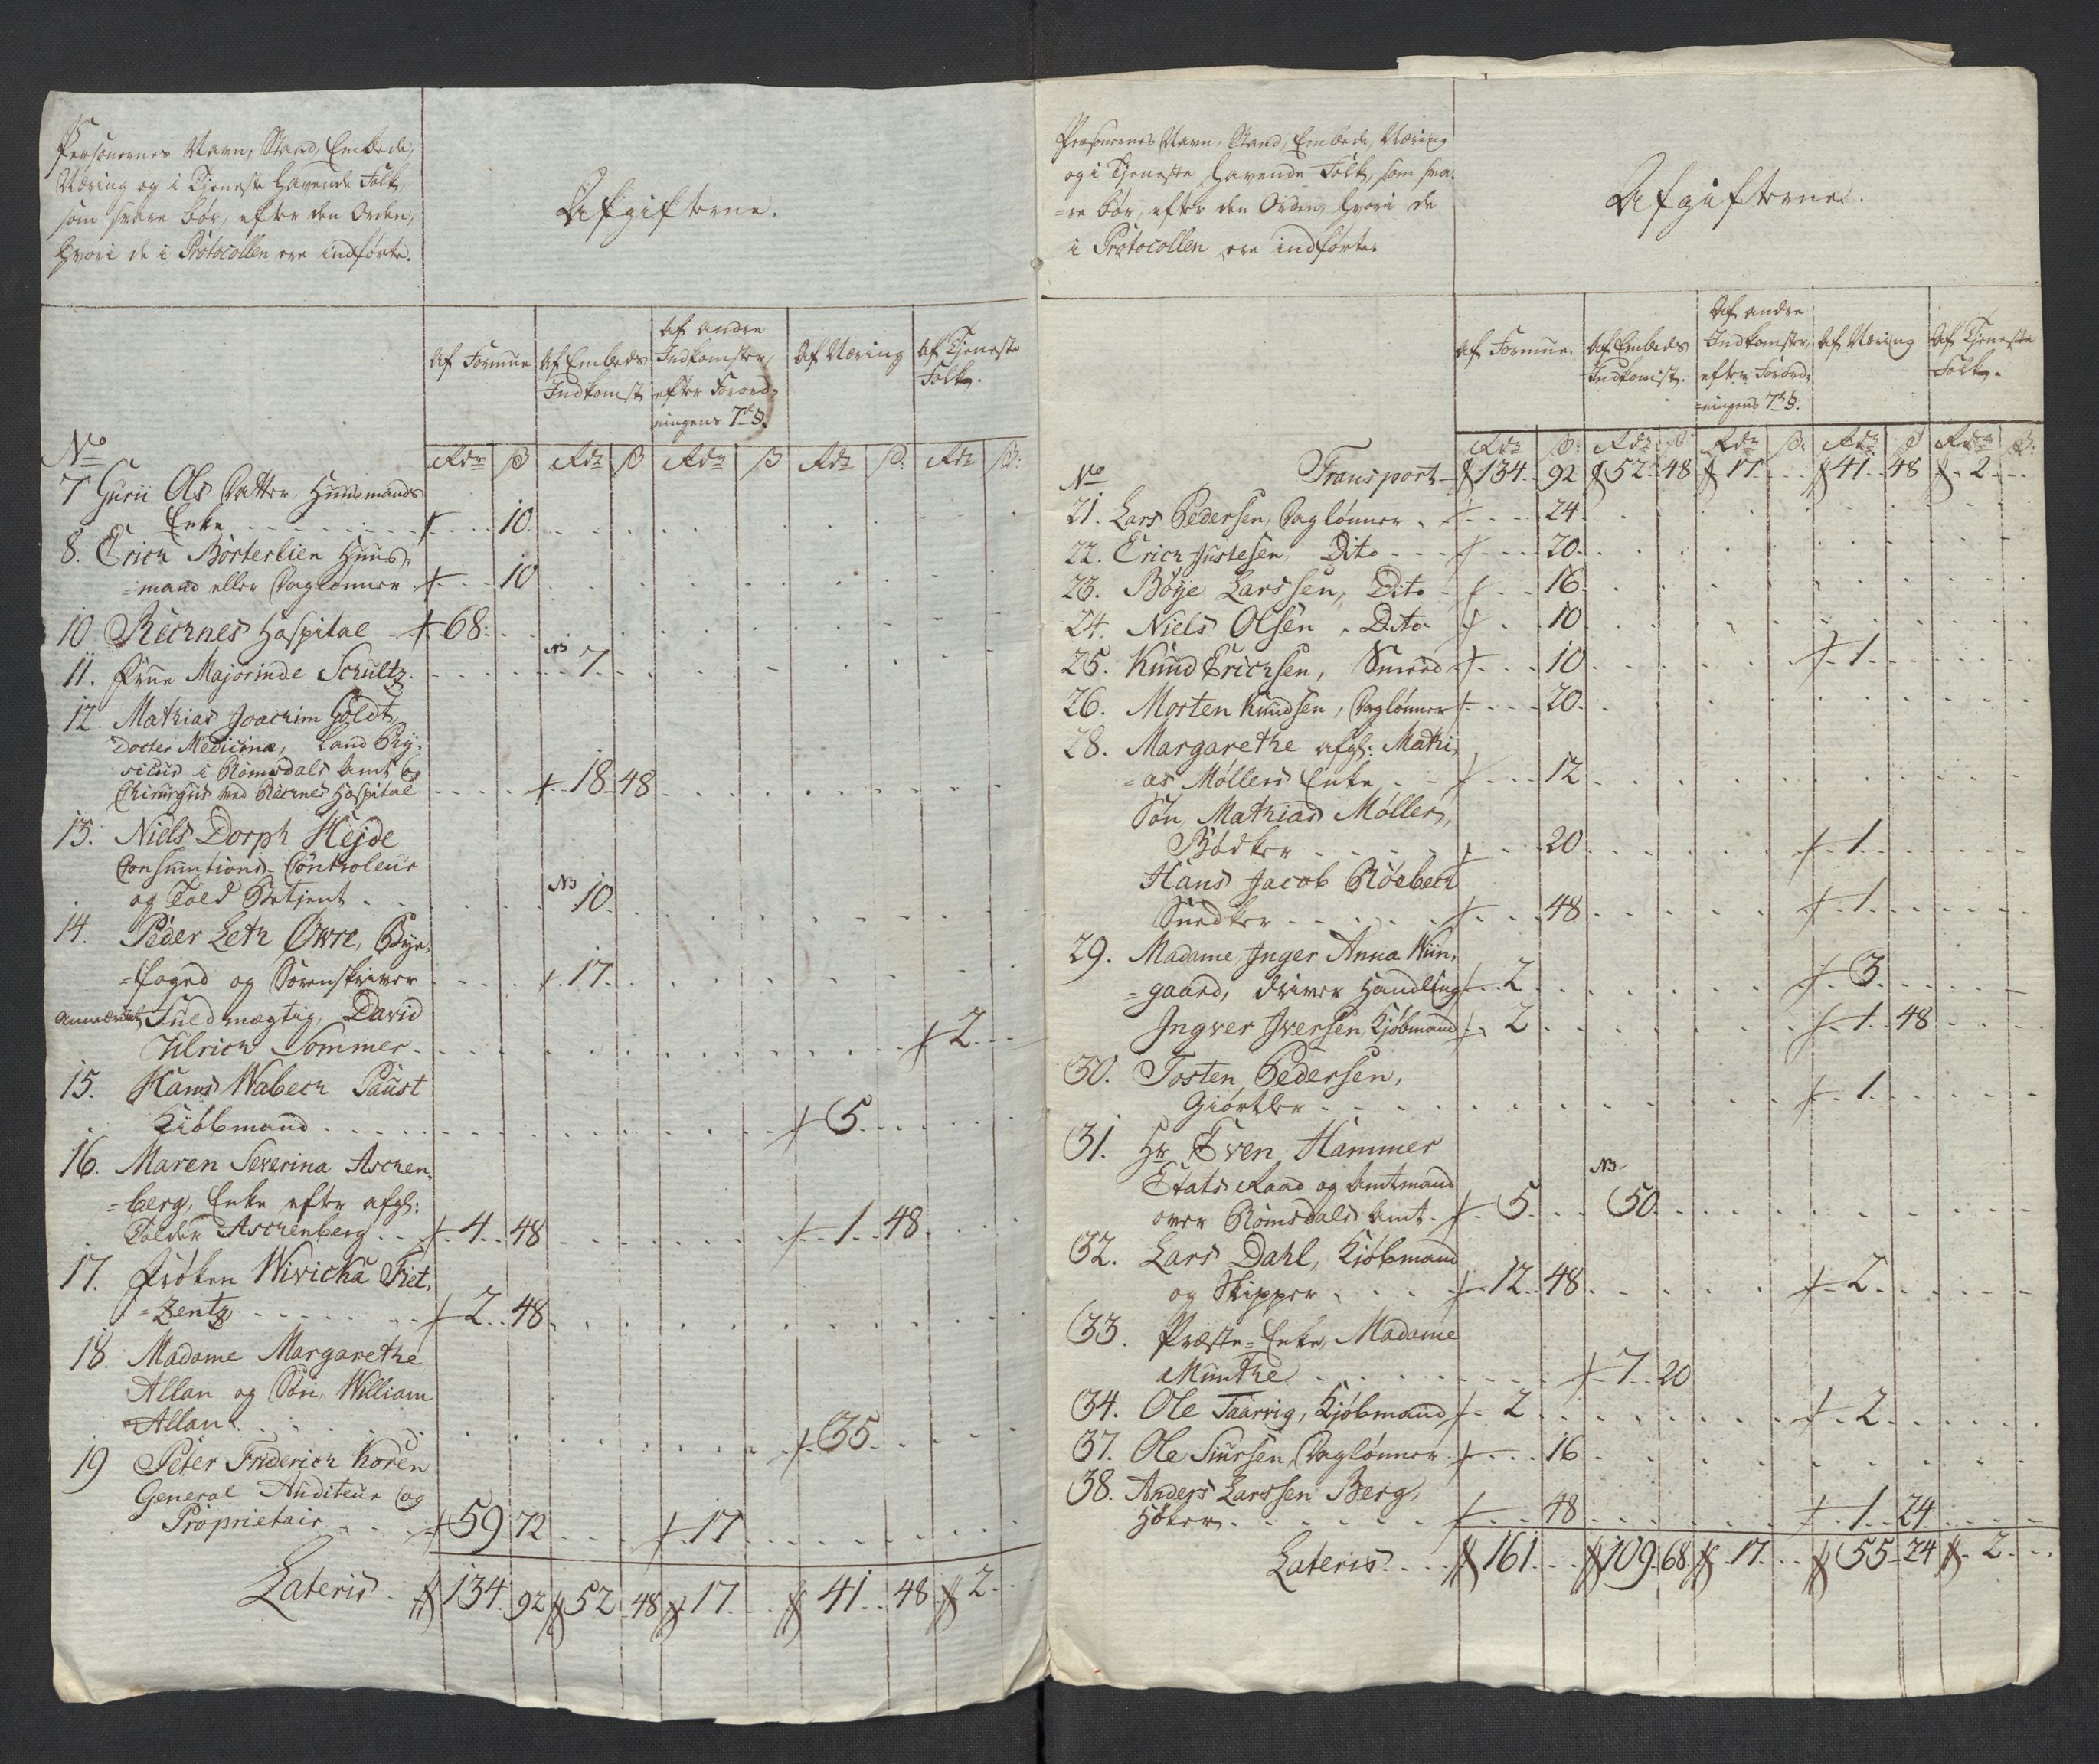 Personernes Navn, Stand, Embede,
Næring og i Tjeneste havende Folk,
som svare bør, efter den Orden,
hvori de i Protocollen ere indførte.
Afgifterne.
Af Formue
Af Embeds Indkomst
Af andre Indkomster, efter Forordningens 7de §.
Af Næring
Af Tjeneste Folk.
No Rdr ß Rdr ß Rdr ß Rdr ß. Rdr ß:
7 Gurii Ols Datter, Huusmands
Enke 10.
8. Erich Børterlien Huus-
=mand eller Daglønner 10
10 Recknes Hospital 68.
11. Frue Majorinde Schultz. NB 7
12. Mathias Joachim Goldt,
Docter Medicinæ, Land Phy-
sicus i Romsdals Amt og
Chirurgus ved Recknes Hospital 18 48
13. Niels Dorph Hejde
Consumtions-Controleur
og Told Betjent NB 10.
14. Peder Leth Øwre, Bye-
=foged og Sorenskriver 17.
Fuldmægtig, David
Ulrich Sommer 2
15. Hans Wabech Paust
Kiøbmand 5.
16. Maren Severina Aschen-
=berg, Enke efter afg:
Tolder Aschenberg 4 48 1 48
17. Frøken Wivicka Fiet-
=zentz 2 48
18. Madame Margarethe
Allan og Søn, William
Allan 35.
19 Peter Friderich Koren
General Auditeur og
Proprietair 59 72 17
Lateris 134 92 52 48 17 41 48 2
Personernes Navn, Stand, Embede, Næring
og i Tjeneste havende Folk, som sva-
=re bør, efter den Orden, hvori de
i Protocollen ere indførte.
Afgifterne.
Af Formue.
Af Embeds Indkomst.
Af andre Indkomster, efter Forord-
=ningens 7de §.
Af Næring
Af Tjeneste Folk.
Rdr ß: Rdr ß Rdr ß. Rdr ß Rdr ß:
No Transport 134 92 52 48 17 41 48 2
21. Lars Pedersen, Daglønner 24
22. Erich Justesen, Dito 20.
23. Bøye Larssen, Dito 16.
24. Niels Olsen, Dito 10
25. Knud Erichsen, Smeed 10 1
26. Morten Knudsen, Daglønner 20.
28. Margarethe afg: Mathi-
=as Møllers Enke 12
Søn Mathias Møller,
Bødker 20 1
Hans Jacob Röebech
Snedker 48 1
29. Madame Inger Anna Wiin-
=gaard, driver Handling 2 3
Ingver Iversen, Kjøbmand 2 1 48
30. Tosten Pedersen,
Giørtler 1
31. Hr. Even Hammer
Etats Raad og Amtmand
over Romsdals Amt 5 NB 50.
32. Lars Dahl, Kiøbmand
og Skipper 12 48 2
33. Præste-Enke, Madame
Munthe 7 20
34. Ole Taarvig, Kjøbmand 2 2
37. Ole Siursen, Daglønner 16
38. Anders Larssen Berg,
Høker 48 1 24
Lateris 161 109 68 17 55 24 2